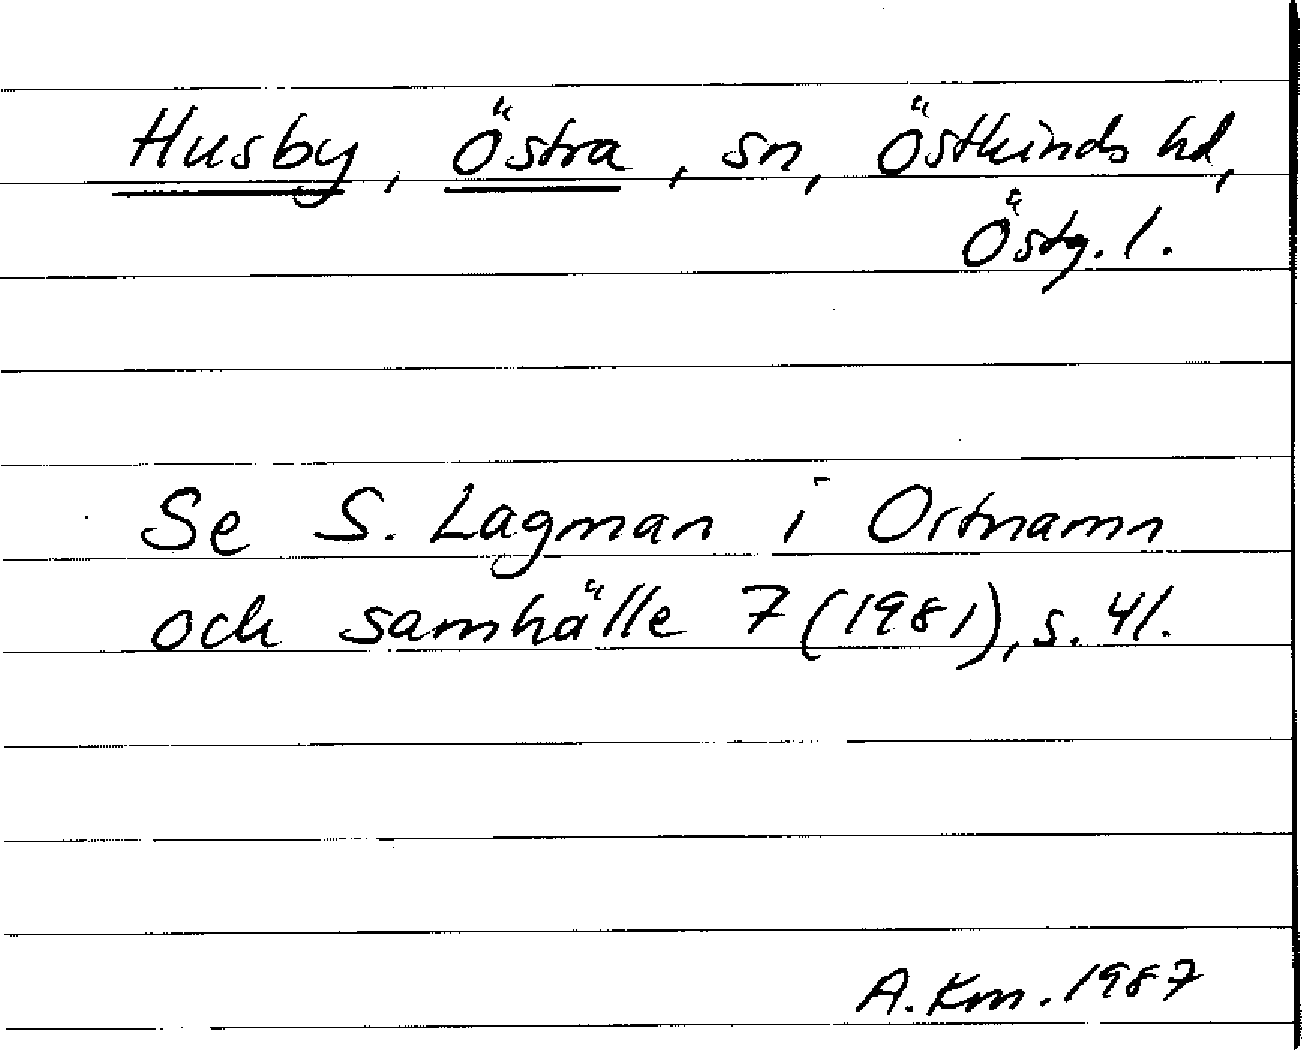 Husby, Östra, sn, Östkinds hd,
Östg. l.
Se S. Lagman i Ortnamn
och samhälle 7 (1981), s. 41.
A. Km. 1987